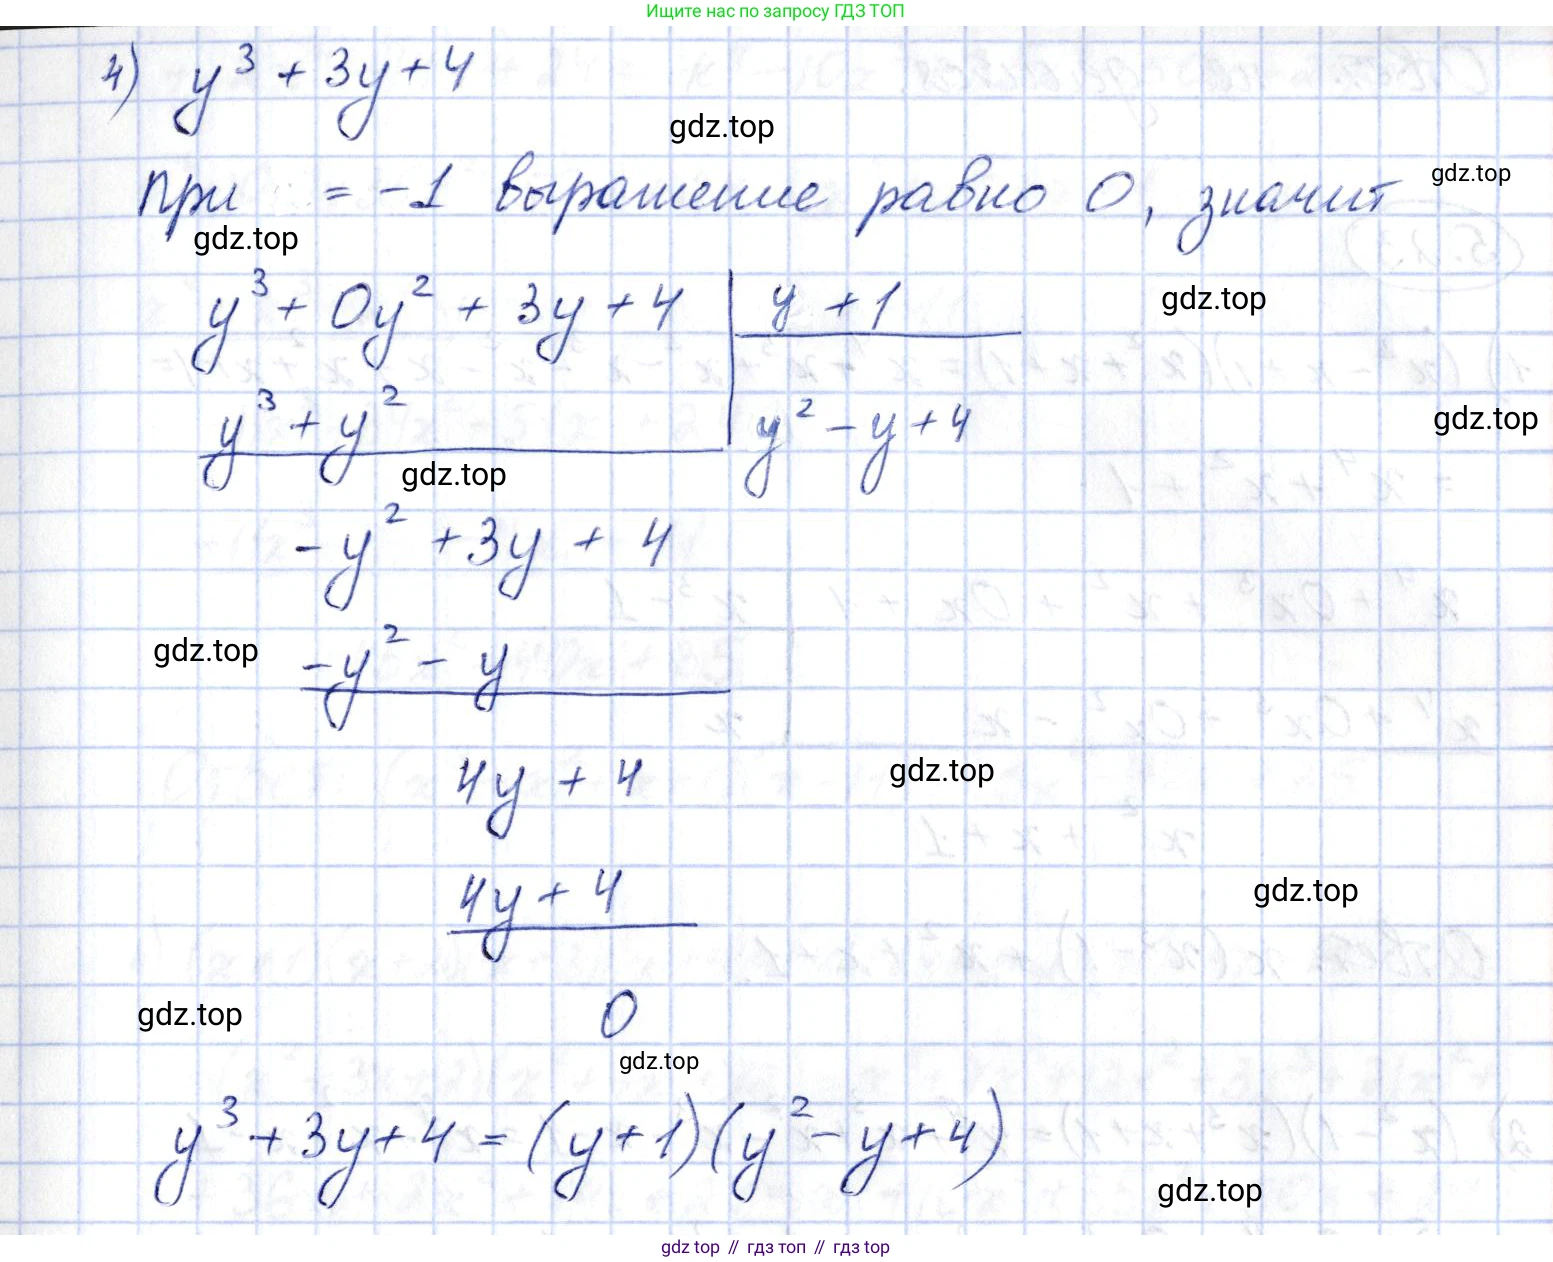 Ищите нас по запросу ГДЗ ТОП
4) y³ + 3y + 4
gdz.top
при = -1 выражение равно 0, значит
gdz.top
gdz.top
y³ + 0y² + 3y + 4 | y + 1
gdz.top
y³ + y² | y² - y + 4
gdz.top
gdz.top
-y² + 3y + 4
-y² - y
gdz.top
4y + 4
gdz.top
4y + 4
gdz.top
0
gdz.top
gdz.top
y³ + 3y + 4 = (y + 1)(y² - y + 4)
gdz.top
gdz top // гдз топ // гдз top